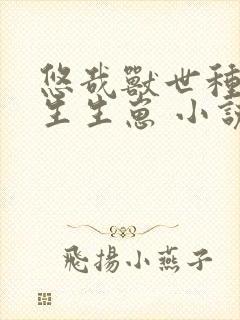 悠哉獸世種
生生崽 小說
飛揚小燕子